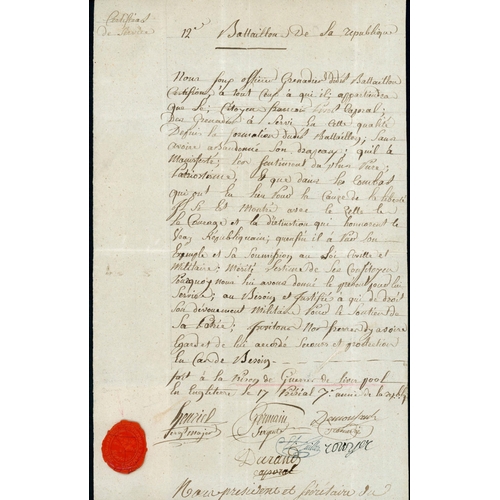 Certificat
de Service
12e Battaillon De la republique
Nous sous officier Grenadier dudit Battaillon
Certifions à tout Ceux à qui il appartiendra
que le Citoyen francois Caporal
Des Grenadier à Servi en Cette qualité
Depuis la formation dudit Battaillon, Sans
avoire abandonné Son drapeau; qu'il à
Manifesté, les Sentiment du plus Pure
Patriotisme, & que dans les Combat
qui ont eu lieu Pour la Cause de la liberté
il S'est Montré avec le Zelle
le Courage et la distinction qui honnorent le
Vrai Républiquain; quenfin il à Par Son
Exemple et Sa Soumission au Loi Civille et
Militaire; Mérité l'estime de Ses Concitoyen
Pourquoy nous lui avons donné le présent pour lui
Servire; au Besoin et Justifié à qui de droit
Son dévouement Militaire Pour le Soutient de
Sa Patrie;
égard et de lui accordé Secours et protection
En Cas de Besoin
fait à la Prison de Guerre de liverpool
En Engleterre le 17 Prérial 7e année de la répblq
Henriet Germain
Sergt major Sergt
Durand
caporal
Nous president et Secrétaire de